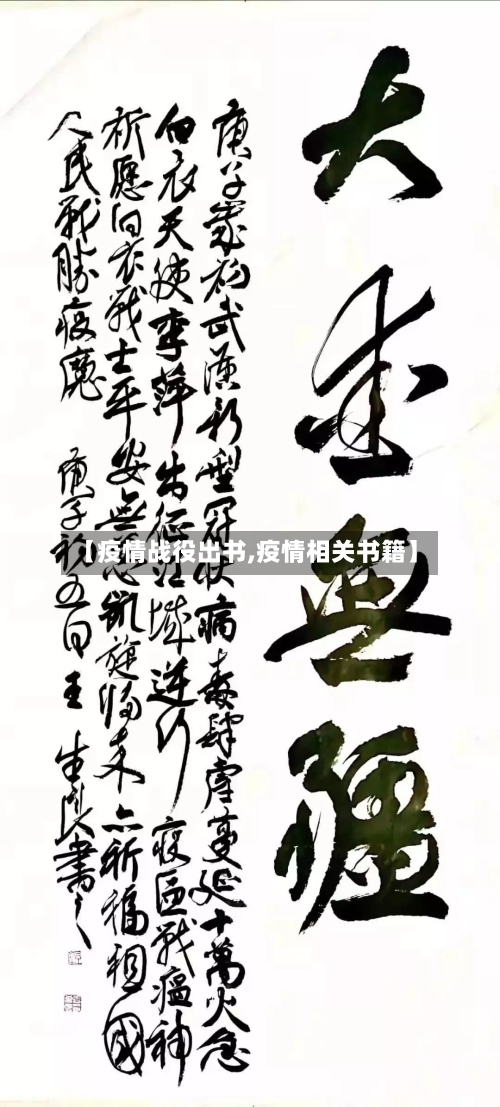 大爱无疆
庚子岁初武汉新型冠状病毒肆虐蔓延十萬火急
白衣天使李萍出征江城逆行疫区戰瘟神
祈愿白衣戰士平安無恙凯旋归来亦祈福祖國
人民戰勝疫魔
庚子初五日王生良書
【疫情战役出书,疫情相关书籍】